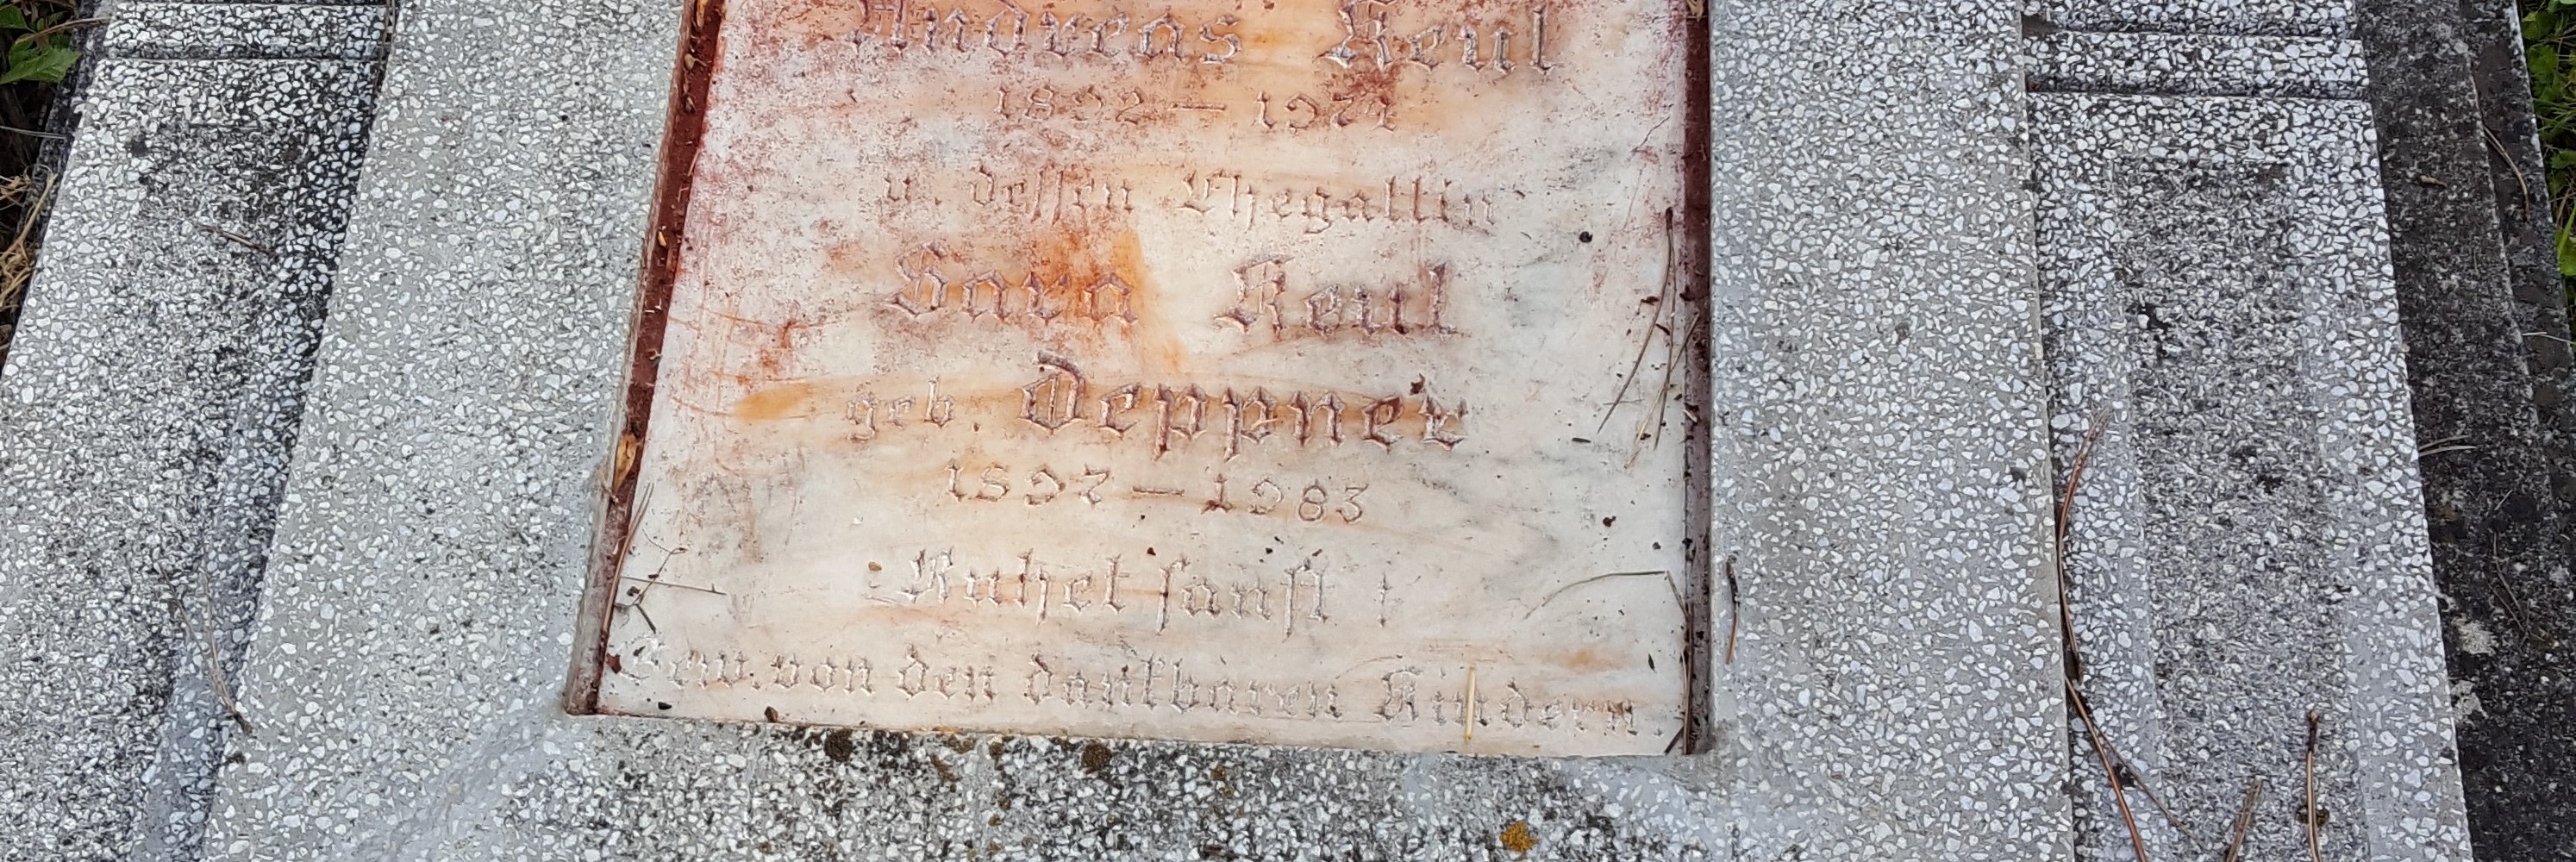 Andreas Keul
1892 – 1971
u. dessen Ehegattin
Sara Keul
geb Deppner
1897 – 1983
Ruhet sanft !
Gew. von den dankbaren Kindern.